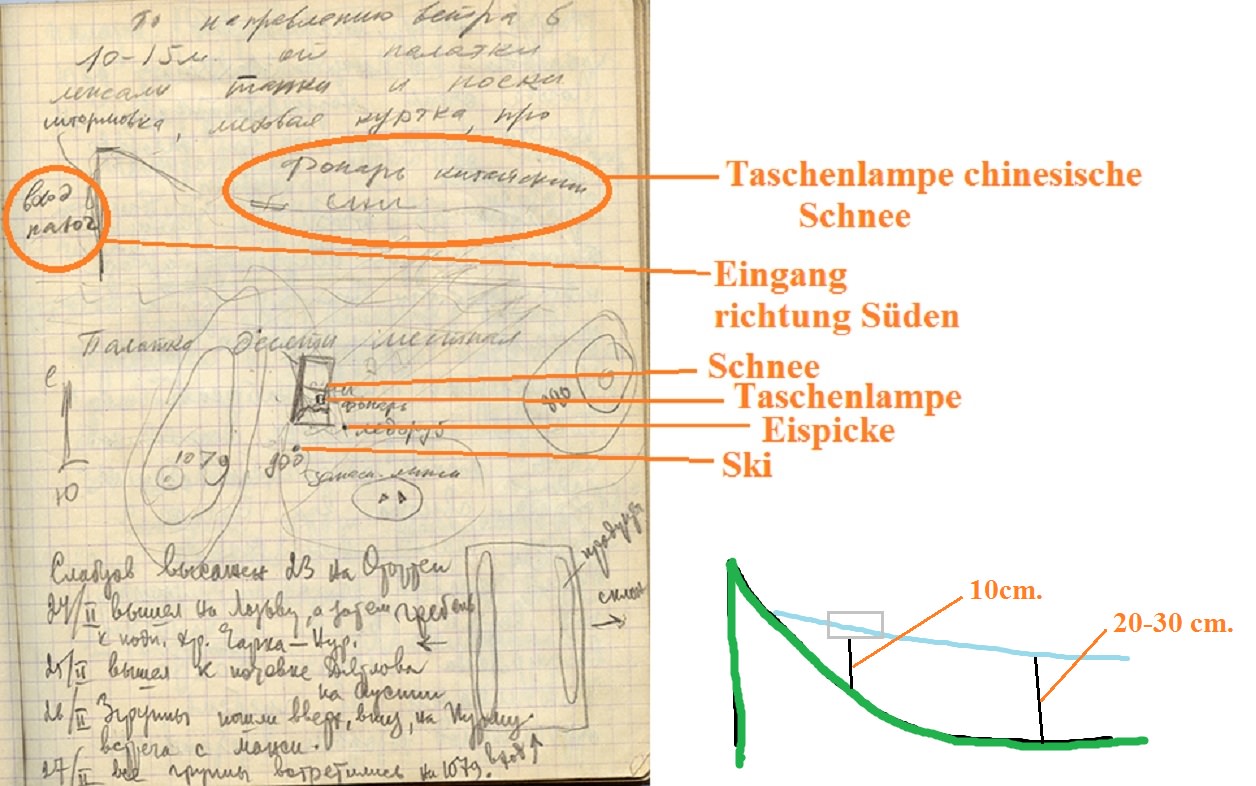 По направлению ветра в
10-15м. от палатки
лежали тапки и носки
штормовка, меховая куртка, про
Фонарь китайский
снег
вход
Палатка десяти местная
С
фонарь
ледоруб
1079
900
880
запасн. лыжи
Ю
продукты
склон
Слабцов высажен 23 на Отортен
24/II вышел на Лозьву, а затем гребень
к подн.
25/II вышел к ночевке Дятлова
на Ауспии
26/II группы пошли вверх, вниз, на
встреча с манси.
27/II все группы встретились на 1079.
вход
Taschenlampe chinesische
Schnee
Eingang
richtung Süden
Schnee
Taschenlampe
Eispicke
Ski
10cm.
20-30 cm.